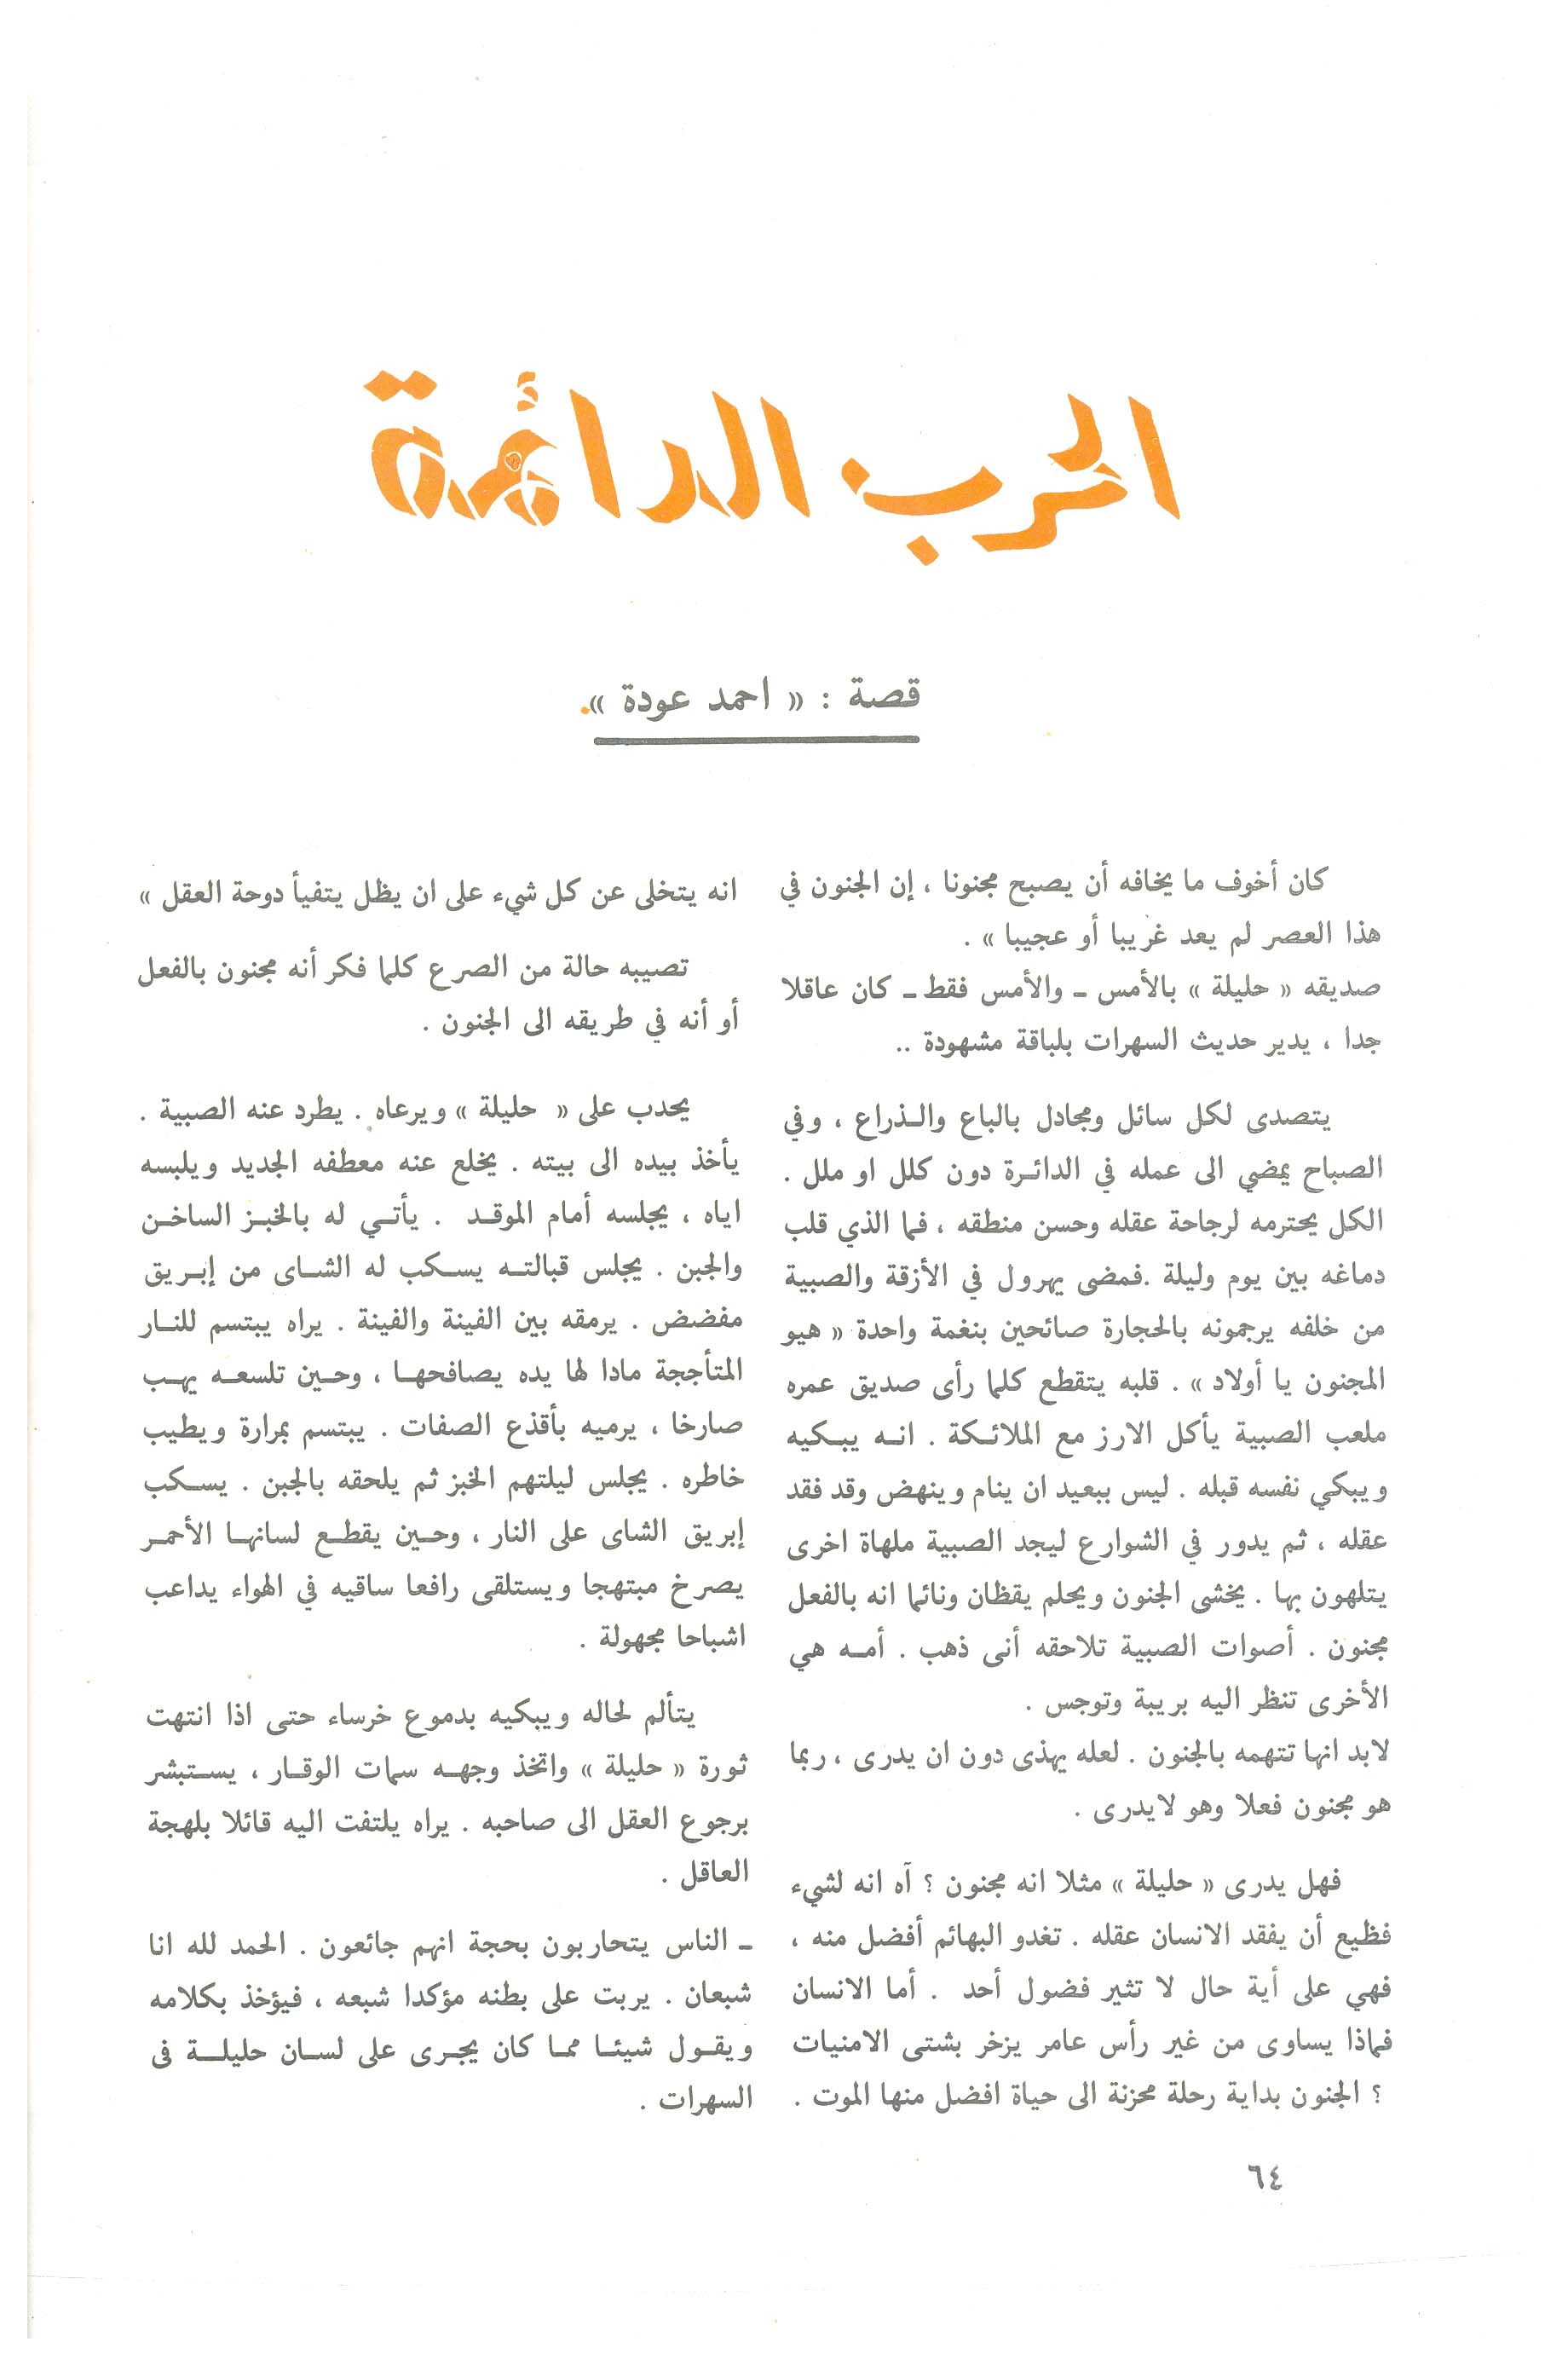 الحرب الدائمة
قصة : « احمد عودة ».
كان أخوف ما يخافه أن يصبح مجنونا ، إن الجنون في
هذا العصر لم يعد غريبا أو عجيبا » .
صديقه « حليلة » بالأمس ـ والأمس فقط ـ كان عاقلا
جدا ، يدير حديث السهرات بلباقة مشهودة ..
يتصدى لكل سائل ومجادل بالباع والـذراع ، وفي
الصباح يمضي الى عمله في الدائـرة دون كلل او ملل .
الكل يحترمه لرجاحة عقله وحسن منطقه ، فما الذي قلب
دماغه بين يوم وليلة .فمضى يهرول في الأزقة والصبية
من خلفه يرجمونه بالحجارة صائحين بنغمة واحدة « هيو
المجنون يا أولاد » . قلبه يتقطع كلما رأى صديق عمره
ملعب الصبية يأكل الارز مع الملائـكة . انـه يبـكيه
ويبكي نفسه قبله . ليس ببعيد ان ينام وينهض وقد فقد
عقله ، ثم يدور في الشوارع ليجد الصبية ملهاة اخرى
يتلهون بها . يخشى الجنون ويحلم يقظان ونائما انه بالفعل
مجنون . أصوات الصبية تلاحقه أنى ذهب . أمـه هي
الأخرى تنظر اليه بريبة وتوجس .
لابد انها تتهمه بالجنون . لعله يهذى دون ان يدرى ، ربما
هو مجنون فعلا وهو لايدرى .
فهل يدرى « حليلة » مثلا انه مجنون ؟ آه انه لشيء
فظيع أن يفقد الانسان عقله . تغدو البهائم أفضل منه ،
فهي على أية حال لا تثير فضول أحد . أما الانسان
فماذا يساوى من غير رأس عامر يزخر بشتى الامنيات
؟ الجنون بداية رحلة محزنة الى حياة افضل منها الموت .
انه يتخلى عن كل شيء على ان يظل يتفيأ دوحة العقل »
تصيبه حالة من الصرع كلما فكر أنه مجنون بالفعل
أو أنه في طريقه الى الجنون .
يحدب على « حليلة » ويرعاه . يطرد عنه الصبية .
يأخذ بيده الى بيته . يخلع عنه معطفه الجديد ويلبسه
اياه ، يجلسه أمام الموقـد . يأتـي له بالخبـز الساخـن
والجبن . يجلس قبالتـه يسـكب له الشـاى من إبـريق
مفضض . يرمقه بين الفينة والفينة . يراه يبتسم للنـار
المتأججة مادا لها يده يصافحهـا ، وحـين تلسعـه يهـب
صارخا ، يرميه بأقذع الصفات . يبتسم بمرارة ويطيب
خاطره . يجلس ليلتهم الخبز ثم يلحقه بالجبن . يسـكب
إبريق الشاى على النار ، وحـين يقطـع لسانهـا الأحمـر
يصرخ مبتهجا ويستلقى رافعا ساقيه في الهواء يداعب
اشباحا مجهولة .
يتألم لحاله ويبكيه بدموع خرساء حتى اذا انتهت
ثورة « حليلة » واتخذ وجهـه سمات الوقـار ، يسـتبشر
برجوع العقل الى صاحبه . يراه يلتفت اليه قائلا بلهجة
العاقل .
ـ الناس يتحاربون بحجة انهم جائعون . الحمد لله انا
شبعان . يربت على بطنه مؤكدا شبعه ، فيؤخذ بكلامه
ويقـول شيئـا ممـا كان يجـرى على لسـان حليلـة فى
السهرات .
٦٤